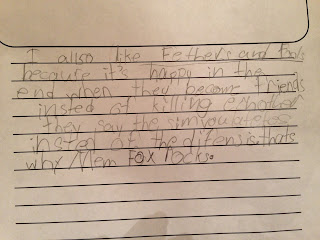 I allso like Fethers and Fools
because it's happy in the
end when they become friends
insted of killing echother
they say the simyoulateles
insted of the difensis. thats
why Mem Fox rocks.